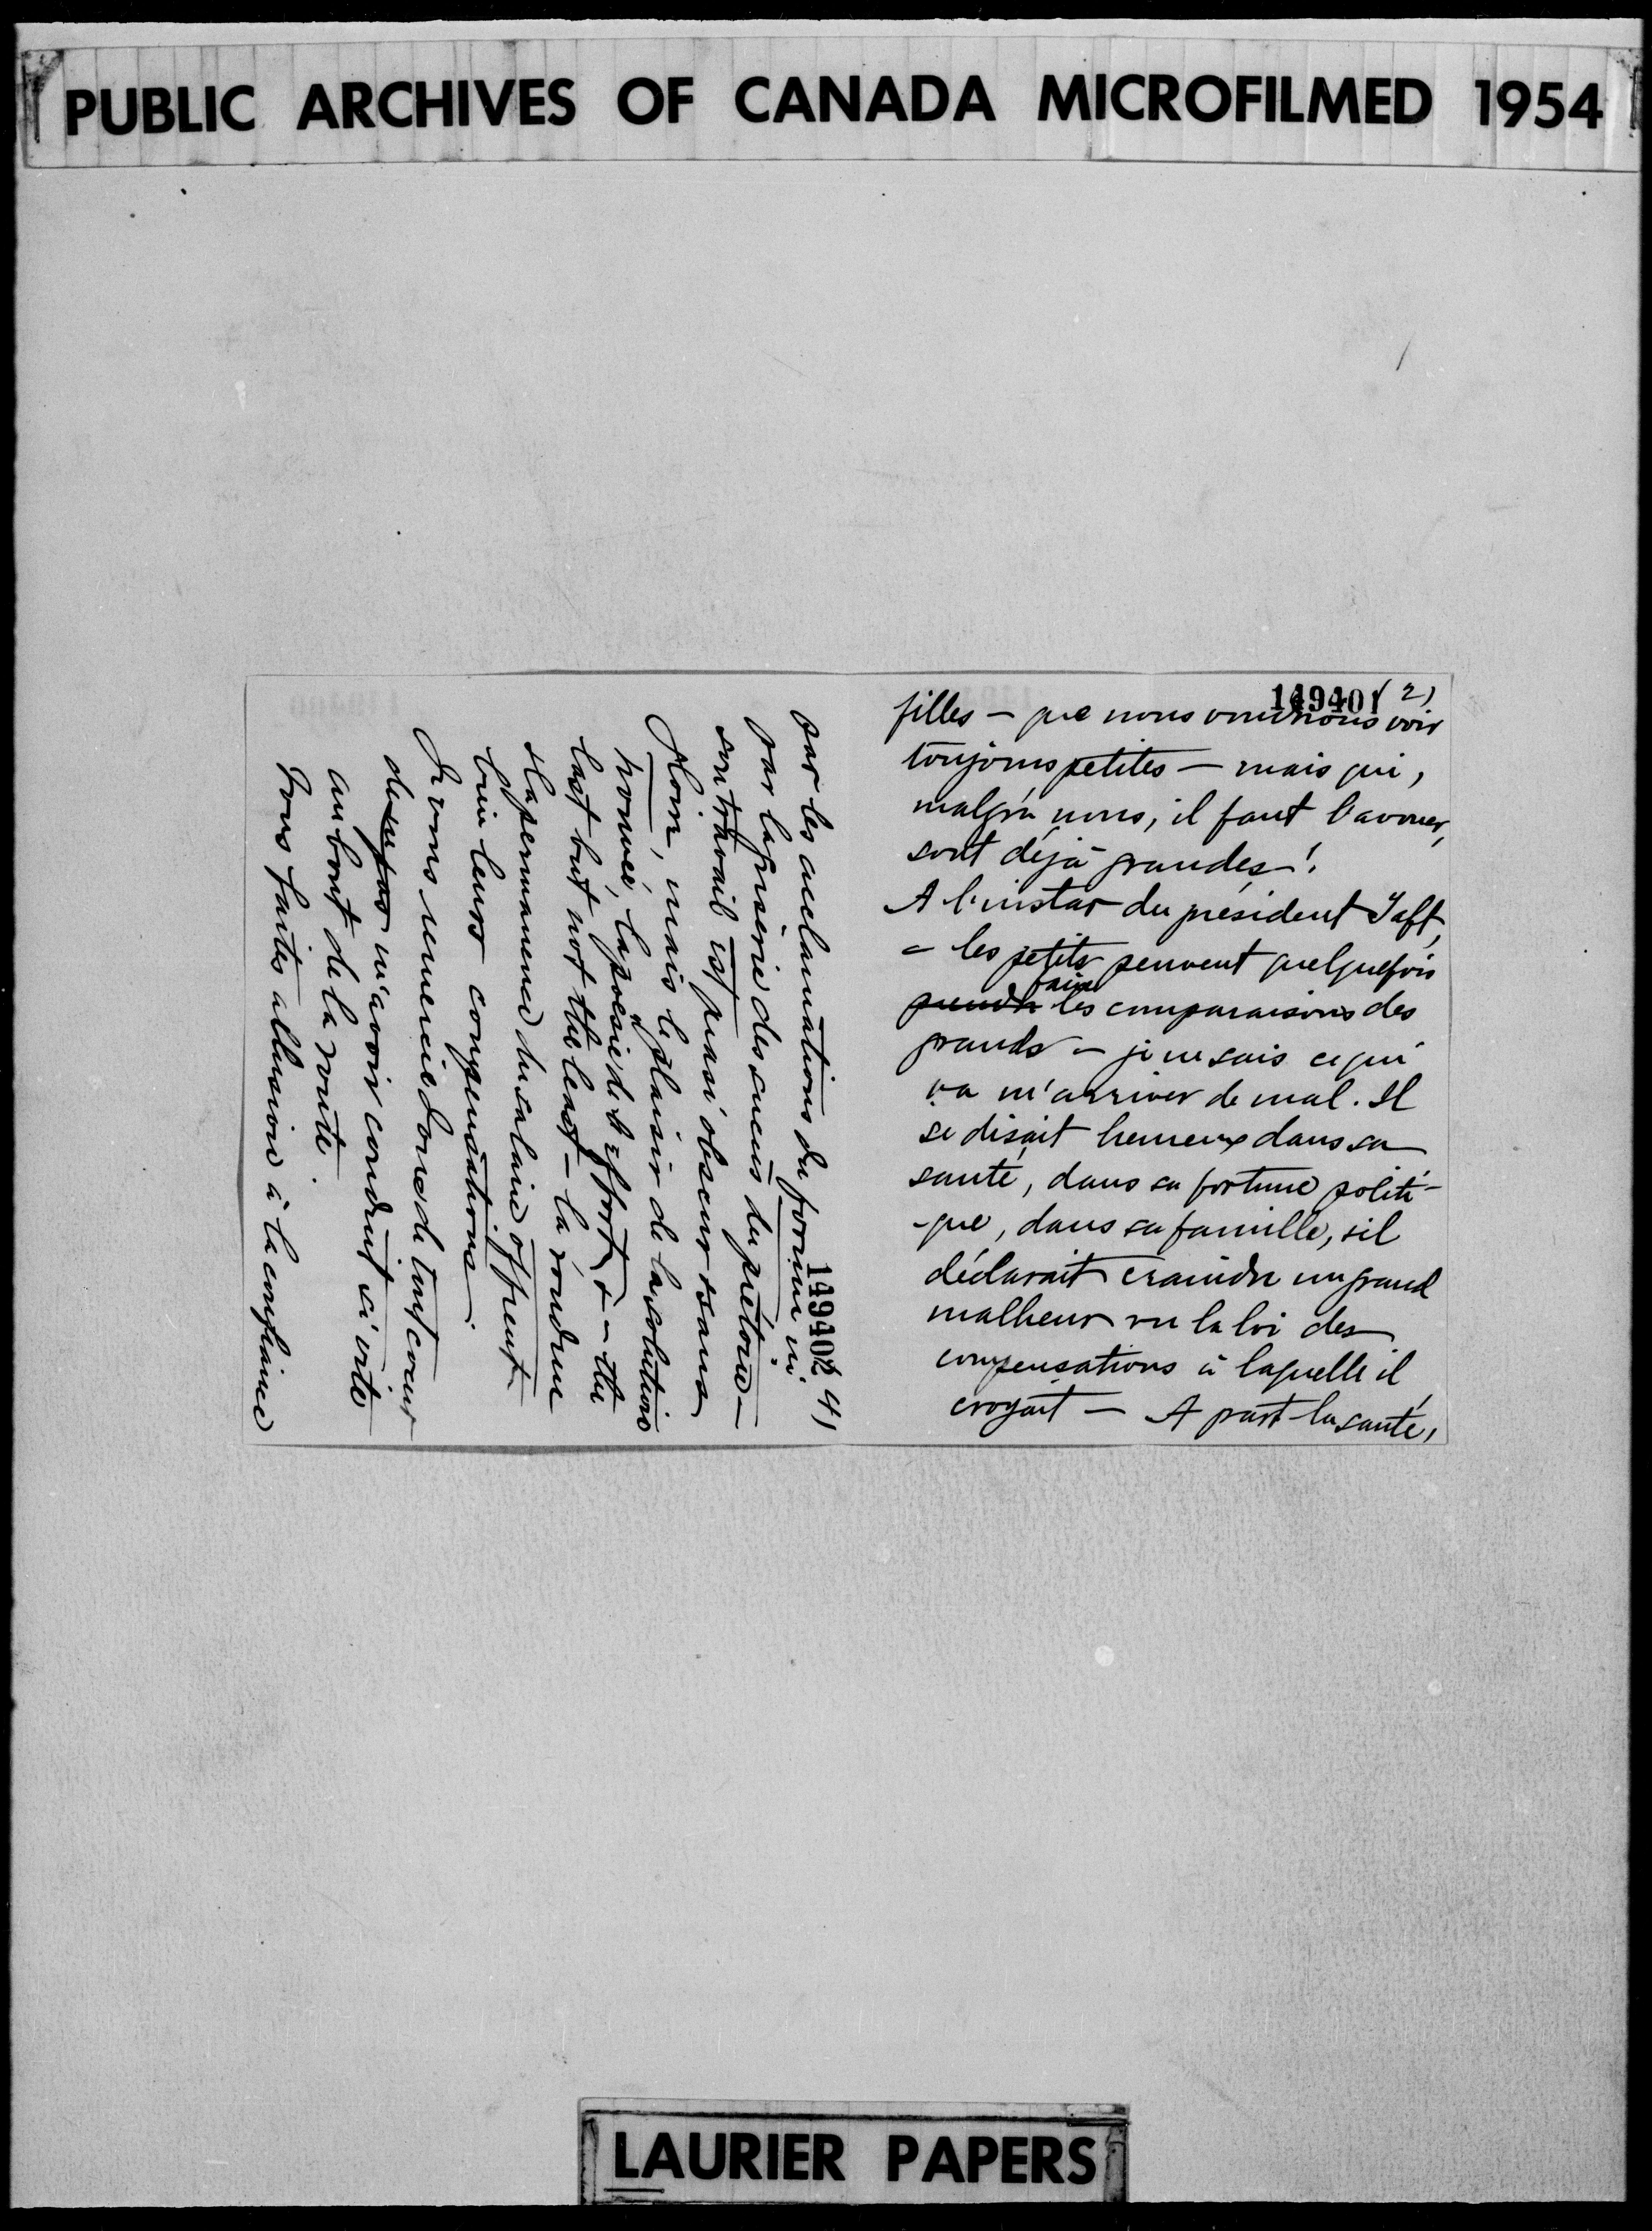 PUBLIC ARCHIVES OF CANADA MICROFILMED 1954
149401 (2)
filles — que nous voudrions voir
toujours petites — mais qui,
malgré nous, il faut l'avouer,
sont déjà grandes!
A l'instar du président Taft,
— les petits peuvent quelquefois
faire
prendre les comparaisons des
grands — je ne sais ce qui
va m'arriver de mal. Il
se disait heureux dans sa
santé, dans sa fortune politi-
-que, dans sa famille, & il
déclarait craindre un grand
malheur vu la loi des
compensations à laquelle il
croyait — A part la santé,
149402 4)
par les acclamations du forum ni
par la griserie des succès du prétoire —
son travail est quasi obscur & sans
gloire, mais le plaisir de la solution
trouvée, la poésie de l'effort & — the
last but not the least — la rondeur
& la permanence du salaire offrent
bien leurs compensations.
Je vous remercie donc de tout coeur
de m'avoir conduit si vite
au bout de la route.
Vous faites allusion à la confiance
LAURIER PAPERS